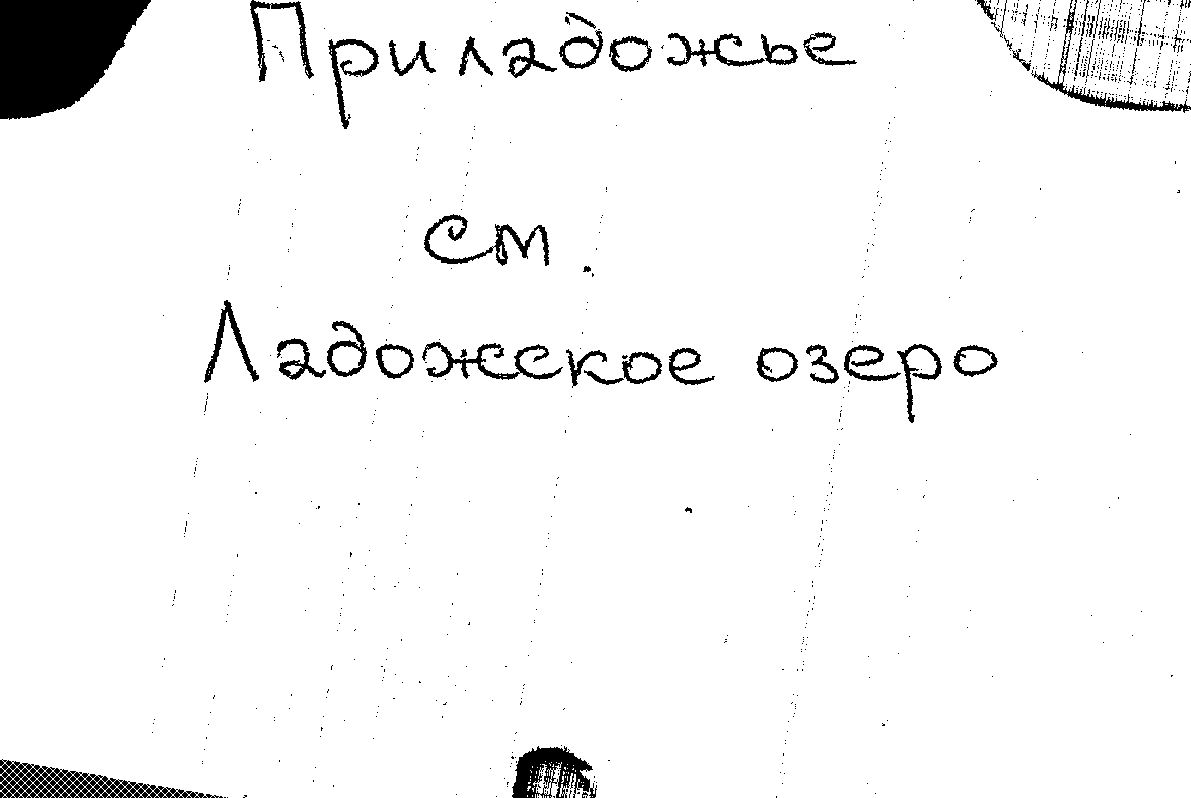 Приладожье
см.
Ладожское озеро